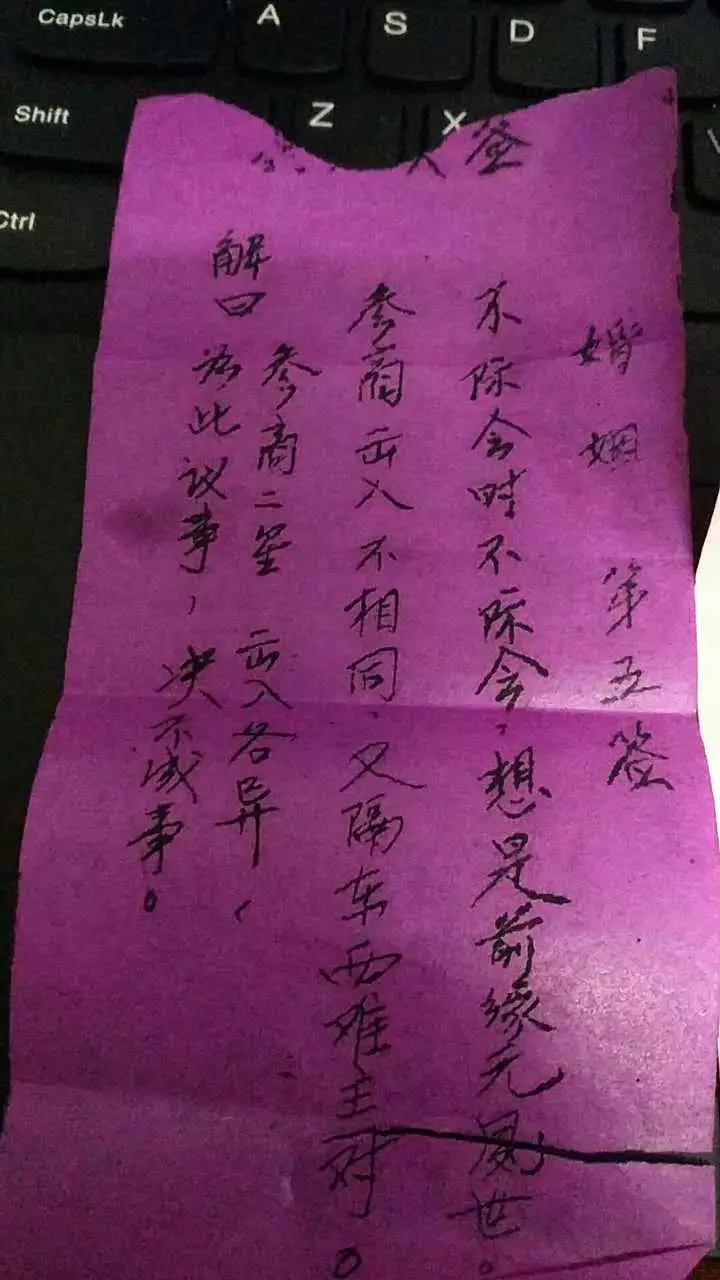 CapsLk
A
S
D
F
Shift
Z
X
Ctrl
签
婚姻 第五签
不际会时不际会，想是前缘元夙世。
参商出入不相同，又隔东西难主对。
解曰
参商二星 出入各异、
为此议事，决不成事。